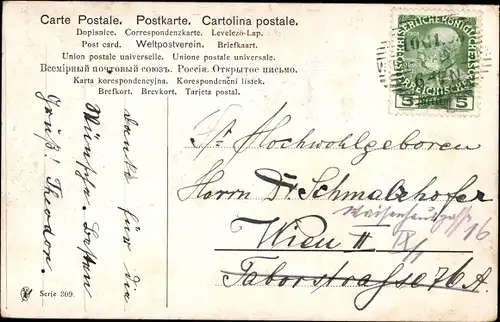 Carte Postale. Postkarte. Cartolina postale.
Dopisnice. Correspondenzkarte. Levelező-Lap.
Post card. Weltpostverein. Briefkaart.
Union postale universelle. Unione postale universale.
Всемірный почтовый союзъ. Россія. Открытое письмо.
Karta korespondencyjna. Korespondenční lístek.
Brefkort. Brevkort. Tarjeta postal.
5 5
WIEN
Danke für die
Wünsche. Besten
Gruß! Theodor.
Hochwohlgeboren
Herrn Dr. Schmalzhofer
Waisenhausgasse 16
Wien II IX/1
Taborstraße 76 A.
Serie 309.